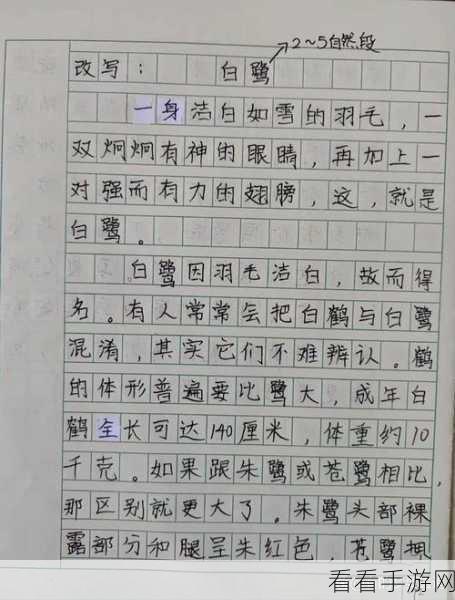 2～5自然段
改写： 白鹭
一身洁白如雪的羽毛，一
双炯炯有神的眼睛，再加上一
对强而有力的翅膀，这，就是
白鹭。
白鹭因羽毛洁白，故而得
名。有人常常会把白鹤与白鹭
混淆，其实它们不难辨认。鹤
的体形普遍要比鹭大，成年白
鹤全长可达140厘米，体重约10
千克。如果跟朱鹭或苍鹭相比，
那区别就更大了。朱鹭头部裸
露部分和腿呈朱红色，苍鹭拥
看看手游网